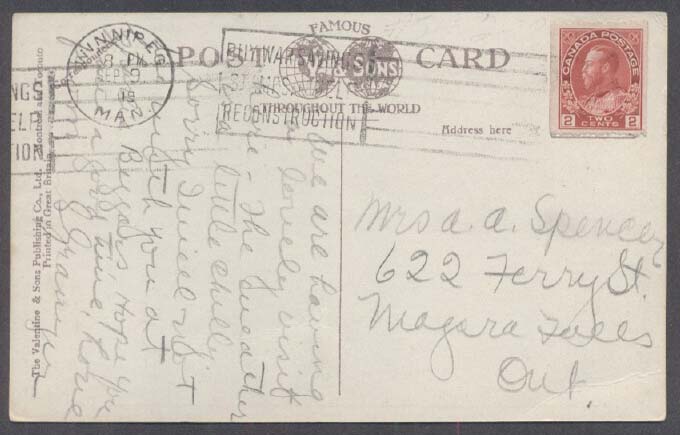 FAMOUS
POST CARD
& SONS
THROUGHOUT THE WORLD
WINNIPEG
8 PM
SEP
MAN
BUY WAR SAVINGS
STAMPS
RECONSTRUCTION
NGS
ELP
TION
CANADA POSTAGE
2 TWO CENTS 2
Address here
The Valentine & Sons Publishing Co., Ltd. Montreal and Toronto
Printed in Great Britain
We are having
a lovely visit
here - The weather
is a little chilly
Sorry I will not
with you at
Beggars Hope you
a good time, Lorne
Granger
Mrs a. a. Spencer
622 Ferry St.
Niagara Falls
Ont.